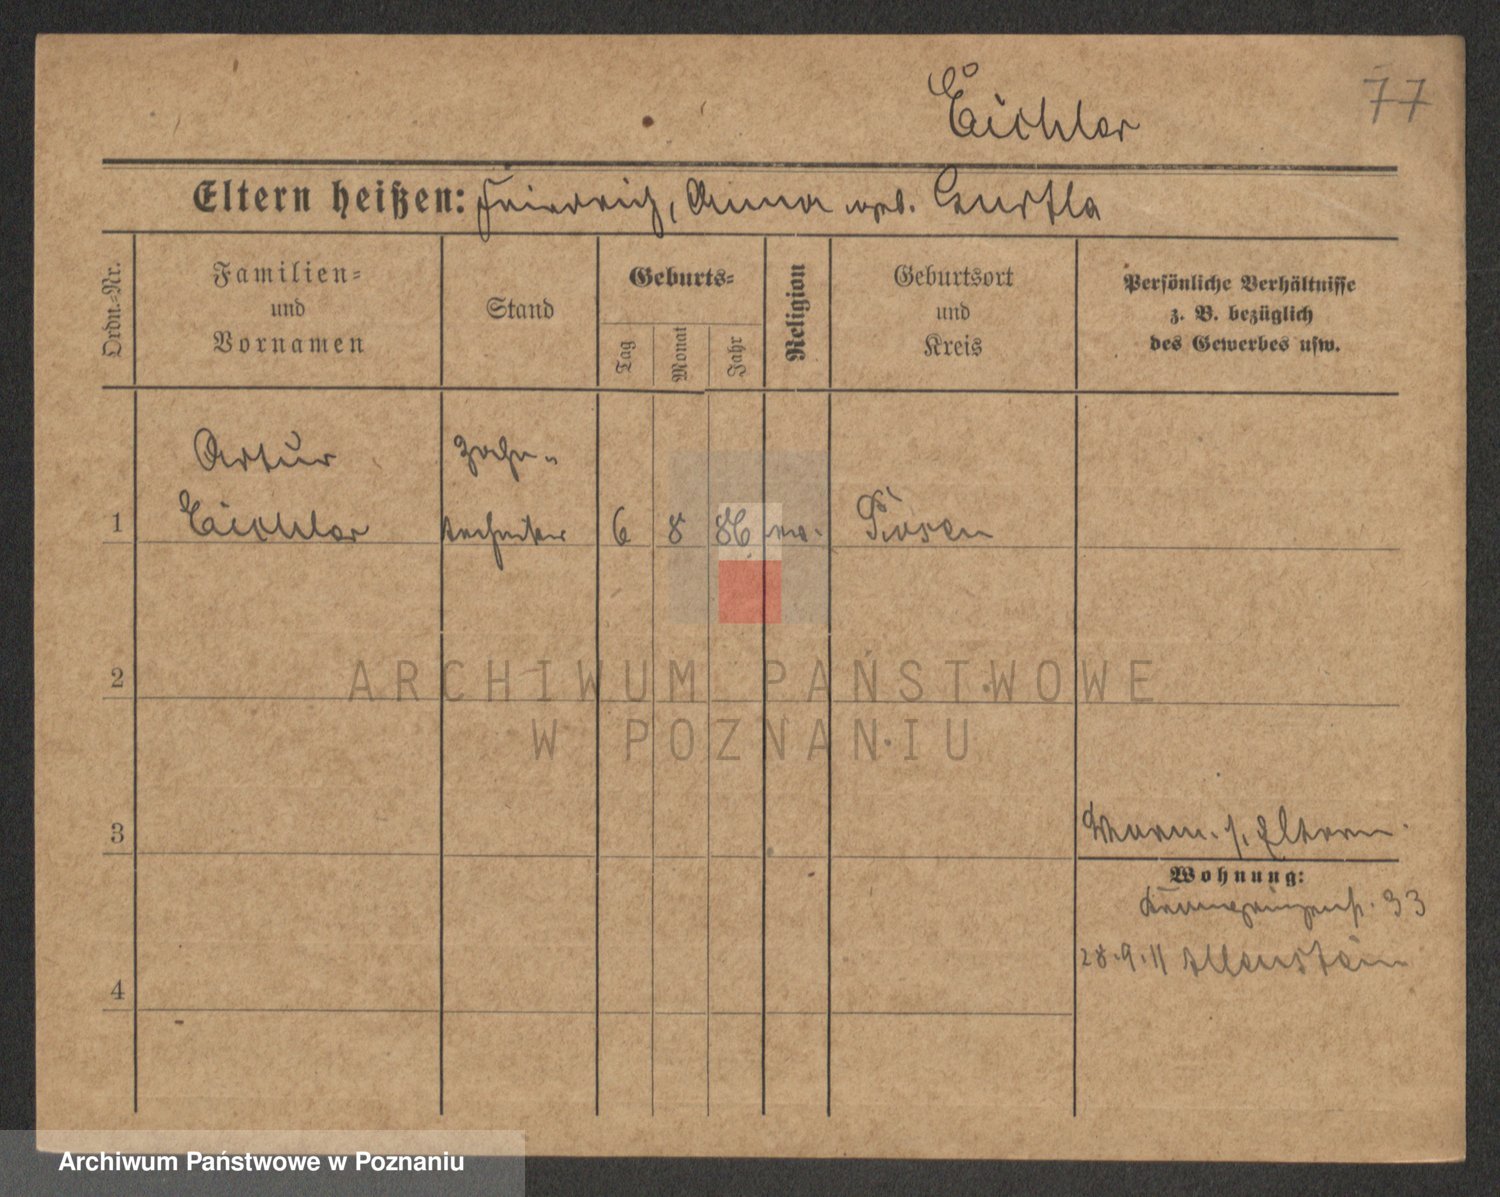 Eichler
77
Eltern heißen: Friedrich, Anna geb.
Ordn.-Nr.
Familien-
und
Vornamen
Stand
Geburts-
Tag
Monat
Jahr
Religion
Geburtsort
und
Kreis
Persönliche Verhältnisse
z. B. bezüglich
des Gewerbes usw.
Artur Zahn-
1 Eichler techniker 6 8 86 ev. Posen
2
ARCHIWUM PAŃSTWOWE
W POZNANIU
3
s. Eltern.
Wohnung:
33
28.9.11 Allenstein
4
Archiwum Państwowe w Poznaniu